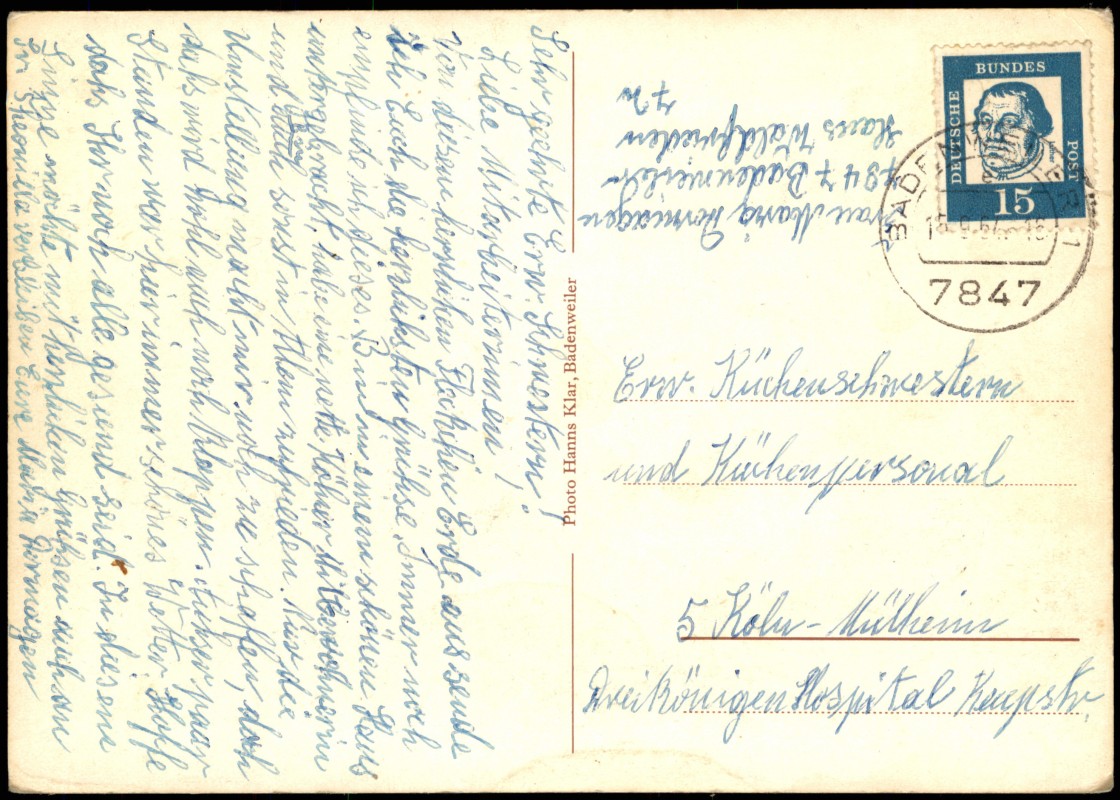 Sehr geehrte Erw. Schwestern!
Liebe Mitarbeiterinnen!
Von diesem herrlichen Fleckchen Erde aus sende
ich Euch die herzlichsten Grühse. Immer noch
empfinde ich dieses. Bin in einem schönen Haus
untergebracht habe eine nette Mitbewohnerin
und bin sonst in Allem zufrieden. Nur die
Bin
Umstellung macht mir noch zu schaffen, doch
das wird wohl auch noch klappen. Außer paar
Stunden war hier immer schönes Wetter. Hoffe
dahs Ihr noch alle gesund seid. In diesem
Sinne möchte mit herzlichen Grühsen auch an
Sr verbleiben Eure Maria Dormagen
Photo Hanns Klar, Badenweiler
Frau Maria Dormagen
7847 Badenweiler
Haus Waldfrieden
DEUTSCHE
BUNDES
POST
15
BADENWEILER
1
7847
Erw. Küchenschwestern
und Küchenpersonal
5 Köln-Mülheim
Dreikönigen Hospital Keupstr.